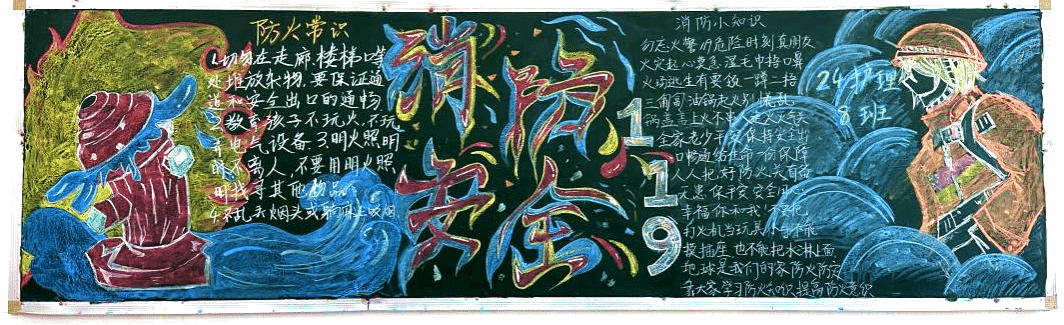 防火常识
1.切勿在走廊楼梯口等
处堆放杂物,要保证通
道和安全出口的通畅
2.教育孩子不玩火,不玩
弄电气设备 3.明火照明
时不离人,不要用明火照
明找寻其他物品
4.不乱丢烟头或躺床上吸烟
消防
安全
119
消防小知识
勿忘火警的危险时刻真朋友
火突起心莫急湿毛巾捂口鼻
火场逃生有要领一蹲二捂
三角 油锅起火别慌乱
锅盖盖上火不
全家老少平安保持安全出
口畅通给生命一份保障
人人把好防火关有备
无患保平安安全
幸福你和我
打火机当玩具
摸插座也不能把水淋上面
地球是我们的家防火防灾
靠大家学习防火知识提高防火意识
24护理
8班